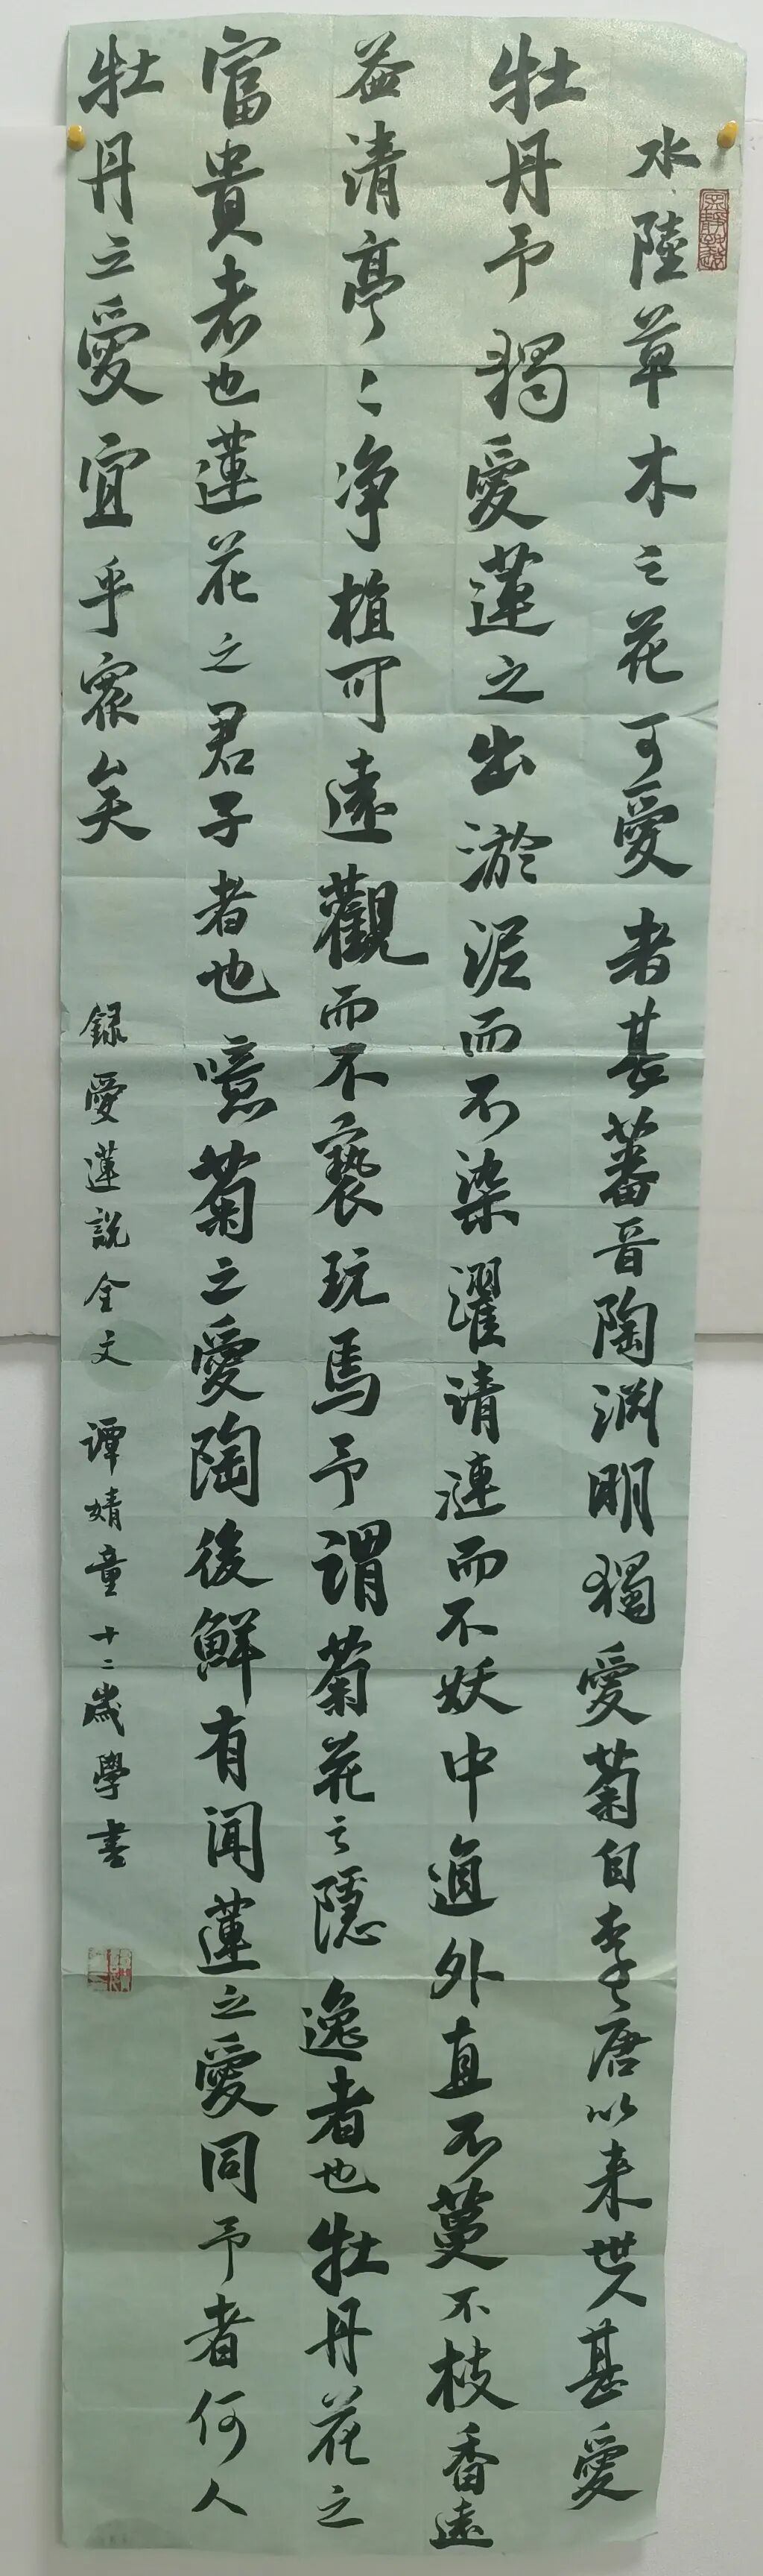 水陸草木之花可愛者甚蕃晋陶渊明獨愛菊自李唐以来世人甚愛
牡丹予獨愛蓮之出淤泥而不染濯清漣而不妖中通外直不蔓不枝香遠
益清亭〻净植可遠觀而不褻玩焉予謂菊花之隱逸者也牡丹花之
富貴者也蓮花之君子者也噫菊之愛陶後鮮有闻蓮之愛同予者何人
牡丹之愛宜乎眾矣
録愛蓮説全文 譚婧童十二歲學書